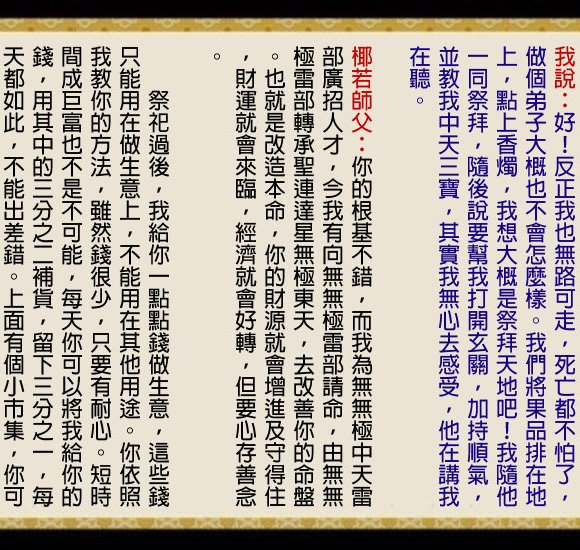 我說：好！反正我也無路可走，死亡都不怕了，
做個弟子大概也不會怎麼樣。我們將果品排在地
上，點上香燭，我想大概是祭拜天地吧！我隨他
一同祭拜，隨後說要幫我打開玄關，加持順氣，
並教我中天三寶，其實我無心去感受，他在講我
在聽。
椰若師父：你的根基不錯，而我為無無極中天雷
部廣招人才，今我有向無無極雷部請命，由無無
極雷部轉承聖連達星無極東天，去改善你的命盤
。也就是改造本命，你的財源就會增進及守得住
，財運就會來臨，經濟就會好轉，但要心存善念
。
祭祀過後，我給你一點點錢做生意，這些錢
只能用在做生意上，不能用在其他用途。你依照
我教你的方法，雖然錢很少，只要有耐心。短時
間成巨富也不是不可能，每天你可以將我給你的
錢，用其中的三分之二補貨，留下三分之一，每
天都如此，不能出差錯。上面有個小市集，你可